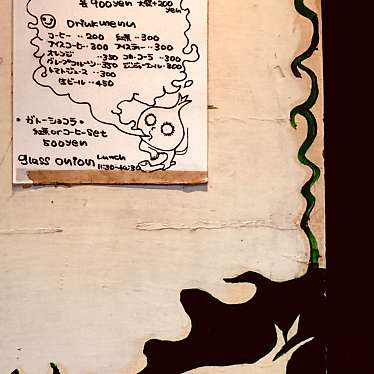 各900yen 大盛+200
yen
Drink menu
コーヒー ‥200 紅茶 ‥300
アイスコーヒー‥300 アイスティー‥300
オレンジ ‥330 コカ・コーラ‥300
グレープフルーツ‥350 ジンジャーエール‥300
トマトジュース‥300
生ビール‥450
・ガトーショコラ・
紅茶 or コーヒー Set
500yen
glass onion Lunch
11:30~14:30